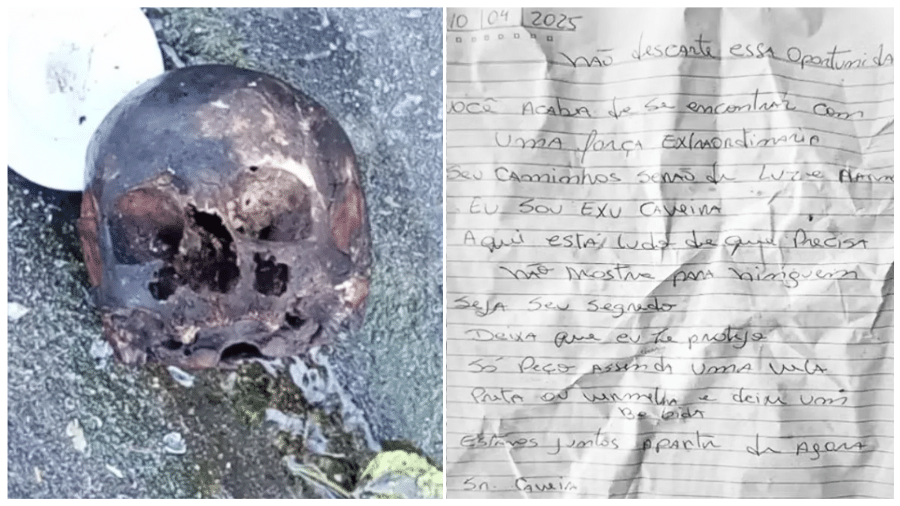 10 04 2025
Não descarte essa oportunida
Você acaba de se encontrar com
uma força extraordinario
Seu caminhos serão de luz e
Eu sou Exu Caveira
Aqui está tudo de que precisa
não mostre para ninguem
Seja seu segredo
Deixa que eu te proteja
Só peço assenda uma vela
Preta ou vermelha e deixe um
Bebida
Estamos juntos aparti de agora
Sr. Caveira